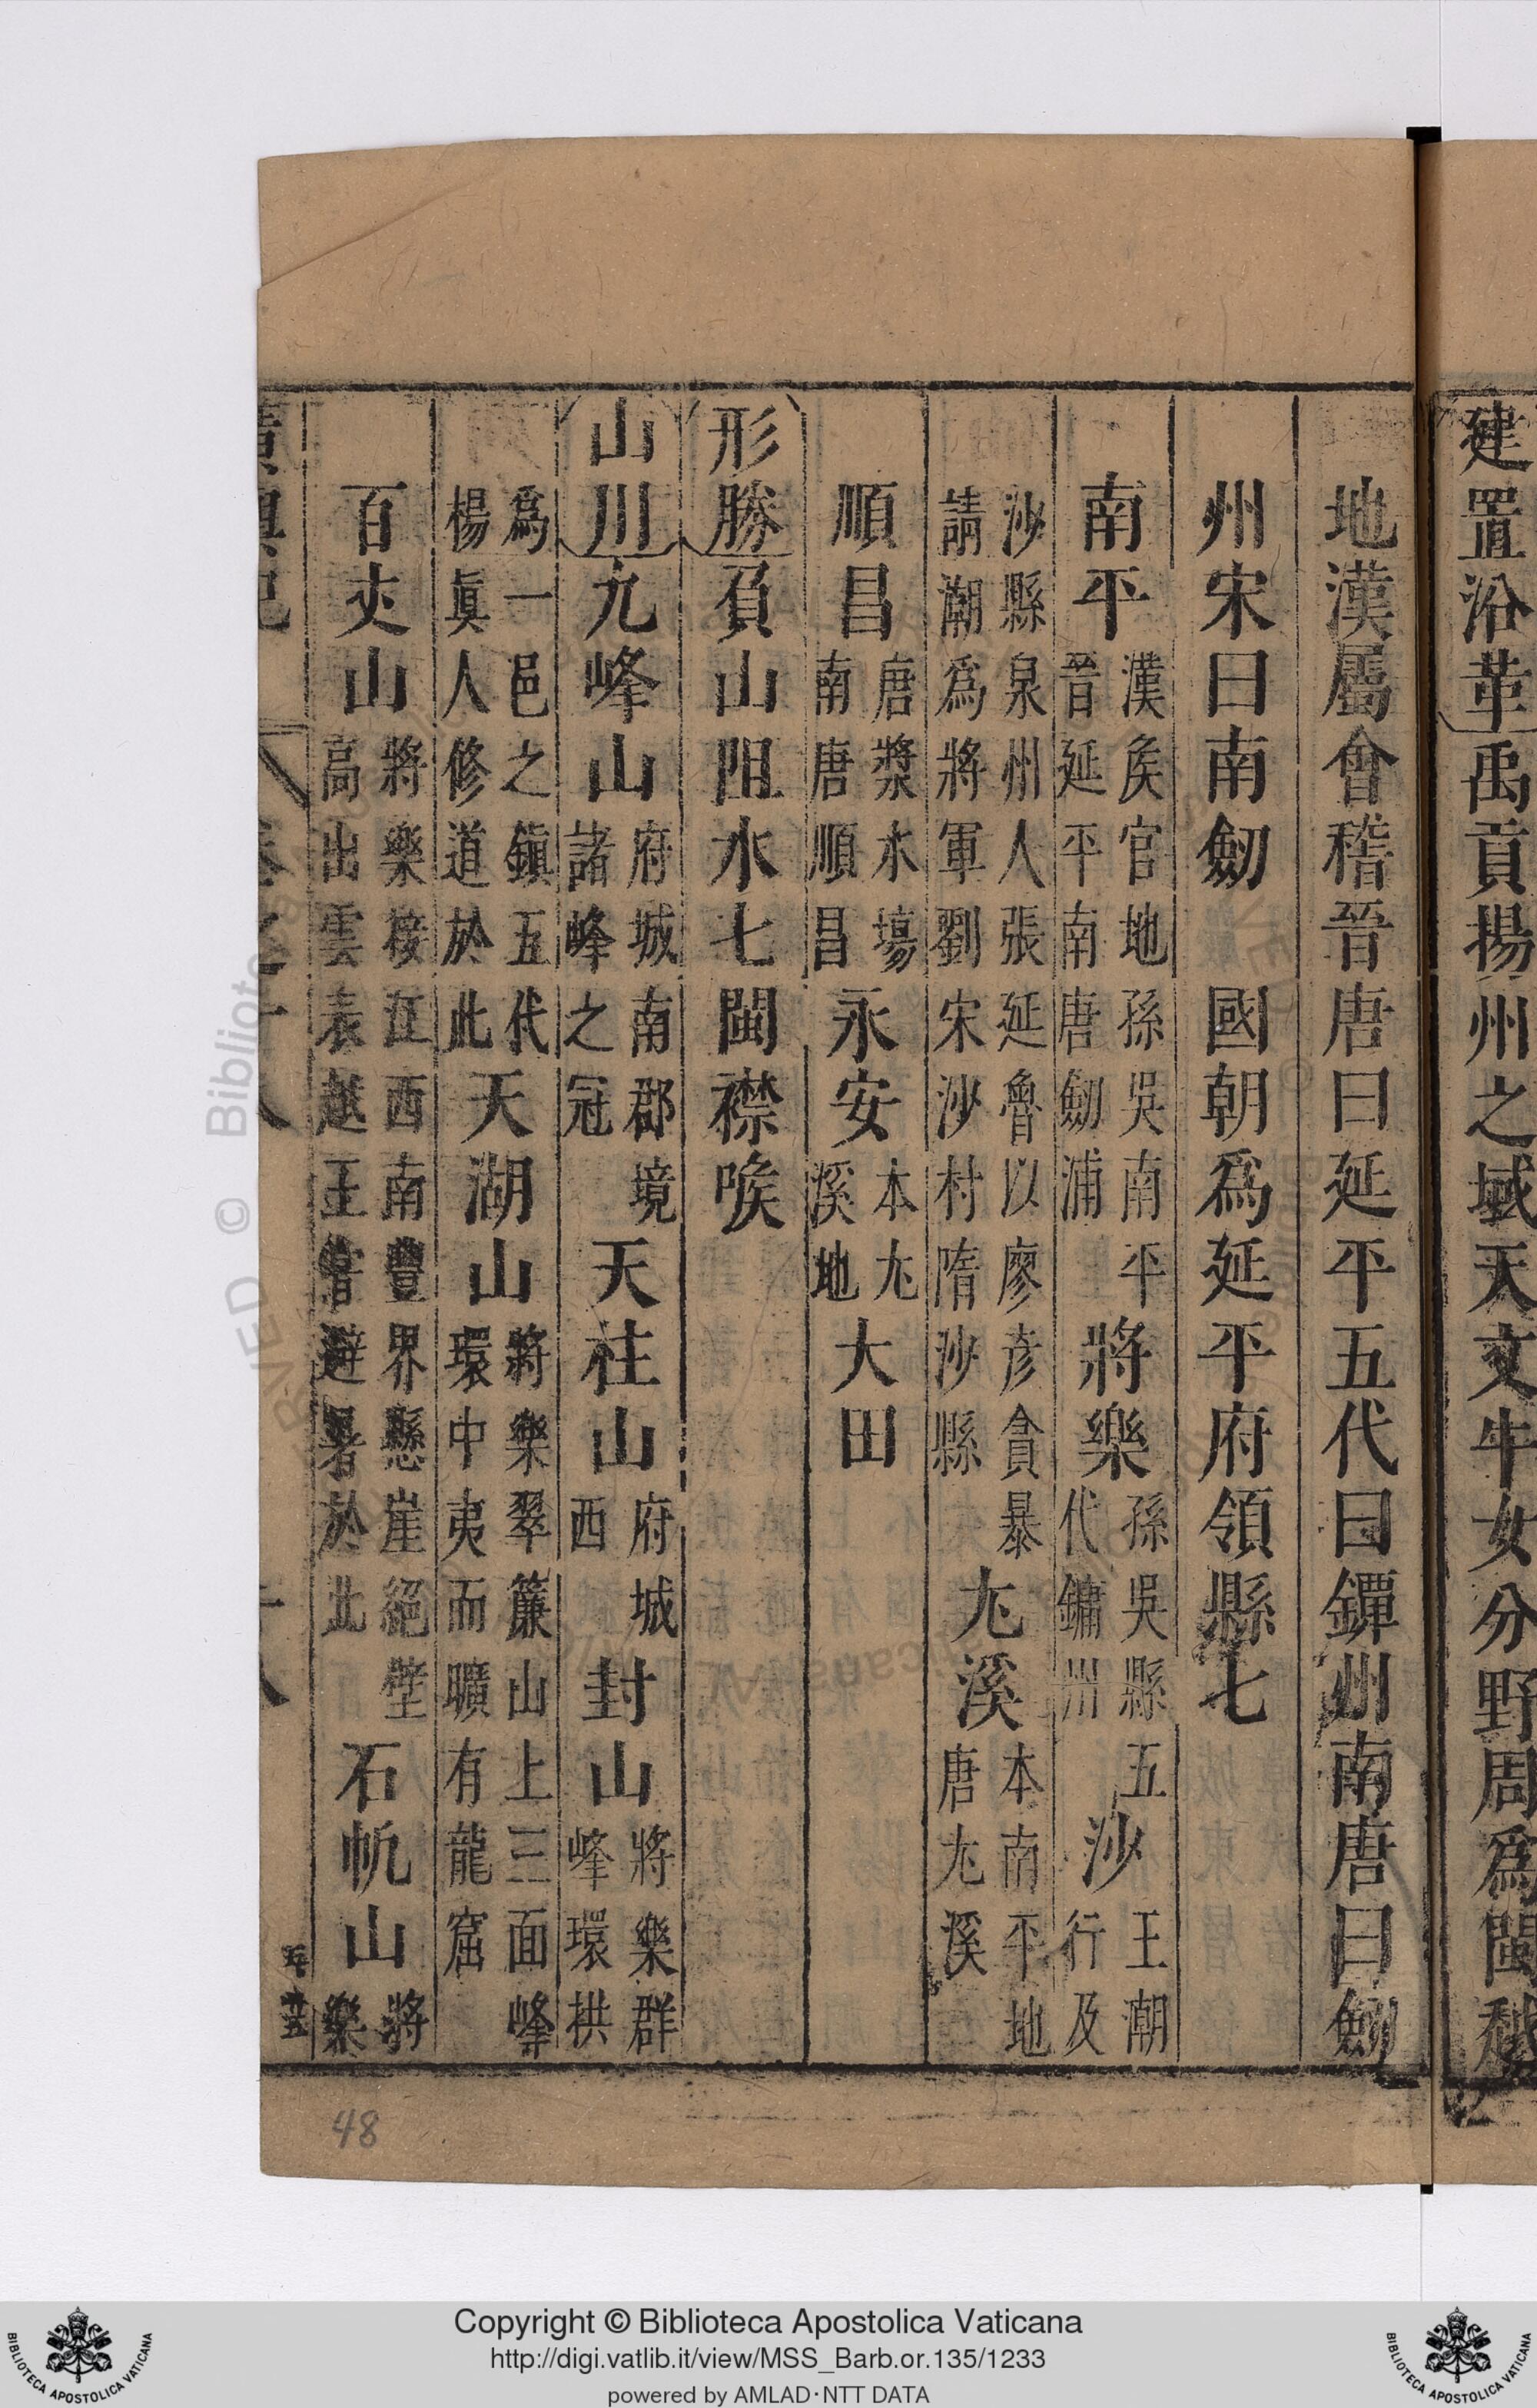 建置沿革禹貢揚州之域天文牛女分野周爲閩越
地漢屬會稽晉唐曰延平五代曰鐔州南唐曰劒
州宋曰南劒 國朝爲延平府領縣七
南平漢矦官地孫吳南平晉延平南唐劒浦 將樂孫吳縣五代鏞州 沙王潮行及
沙縣泉州人張延魯以廖彦貪暴請潮爲將軍劉宋沙村隋沙縣 尤溪本南平地唐尤溪
順昌唐漿水場南唐順昌 永安本尤溪地 大田
形勝負山阻水七閩襟喉
山川九峰山府城南郡境諸峰之冠 天柱山府城西 封山將樂群峰環拱
爲一邑之鎮五代楊眞人修道於此 天湖山將樂翠簾山上三面峰環中夷而曠有龍窟
百丈山將樂接江西南豐界懸崖絕壁高出雲表越王嘗避暑於此 石帆山將樂
48
Copyright © Biblioteca Apostolica Vaticana
http://digi.vatlib.it/view/MSS_Barb.or.135/1233
powered by AMLAD·NTT DATA
BIBLIOTECA APOSTOLICA VATICANA
BIBLIOTECA APOSTOLICA VATICANA